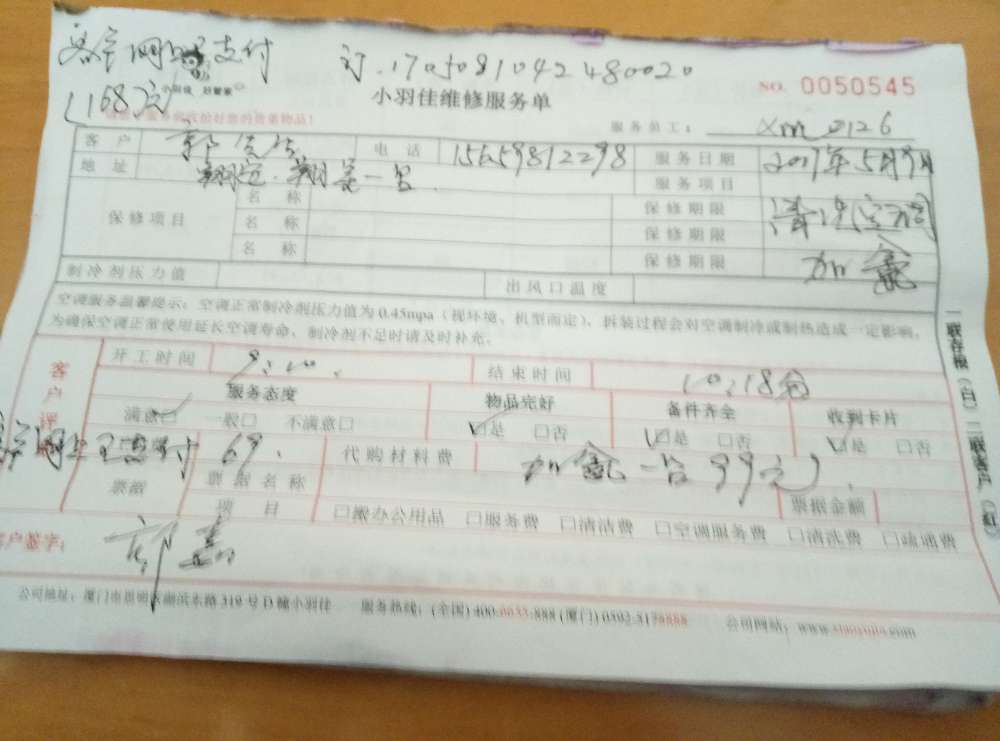 网上支付 订.1705081042480020
(168元
小羽佳维修服务单 NO. 0050545
服务员工: xm 0126
客户 郭先生 电话 15659812298 服务日期 2017年5月9日
地址 翔一号 服务项目 清洗空调
保修项目 名称 保修期限
名称 保修期限
名称 保修期限 加氟
制冷剂压力值 出风口温度
空调服务温馨提示:空调正常制冷剂压力值为0.45mpa(视环境、机型而定),拆装过程会对空调制冷或制热造成一定影响,
为确保空调正常使用延长空调寿命,制冷剂不足时请及时补充。
客户评
开工时间 9:10. 结束时间 10:18分
服务态度 物品完好 备件齐全 收到卡片
满意□ 一般□ 不满意□ □是 □否 □是 □否 □是 □否
网上 付 69. 代购材料费 加氟一台99元)
票据 票据名称 票据金额
项目 □搬办公用品 □服务费 □清洁费 □空调服务费 □清洗费 □疏通费
客户签字: 郭
公司地址:厦门市思明区湖滨东路319号D幢小羽佳 服务热线:(全国)400-0033-888(厦门)0592-5179888 公司网站:www.xiaoyujia.com
一联存根(白)二联客户(红)